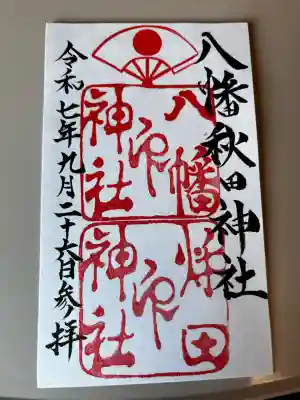 八幡秋田神社
八幡
神社印
秋田
神社印
令和七年九月二十六日参拝